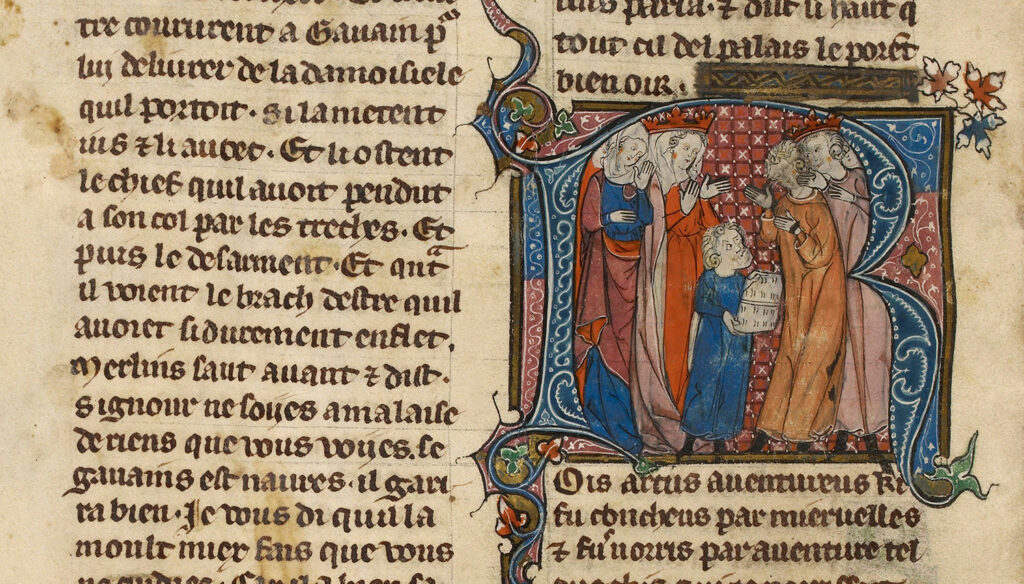 tre coururent a Gauain p
lui deliurer de la damoisiele
quil portoit. Si la metent
ius ⁊ li autet. Et li ostent
le chief quil auoit pendut
a son col par les treches. Et
puis le desarment. Et qnt
il voient le brach destre quil
auoiet si durement enflet.
Merlins saut auant ⁊ dist.
Signour ne soyes a malaise
de riens que vous voyes. se
gauains est naures. il gari
ra bien. Je vous di quil la
moult miex fais que vous
tout cil del palais le poret
bien oir.
Ois artus auentureus ki
fu concheus par mieruelles
⁊ fu norris par auenture tel